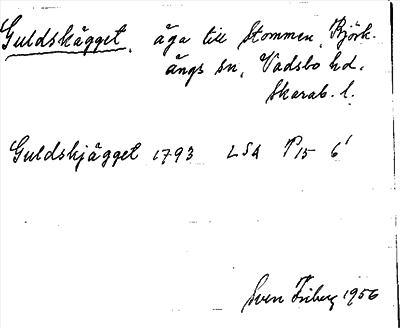 Guldskägget, äga till Stommen, Björk-
ängs sn, Vadsbo hd,
Skarab. l.
Guldskjägget 1793 LSA P15 6'
Sven Friberg 1956